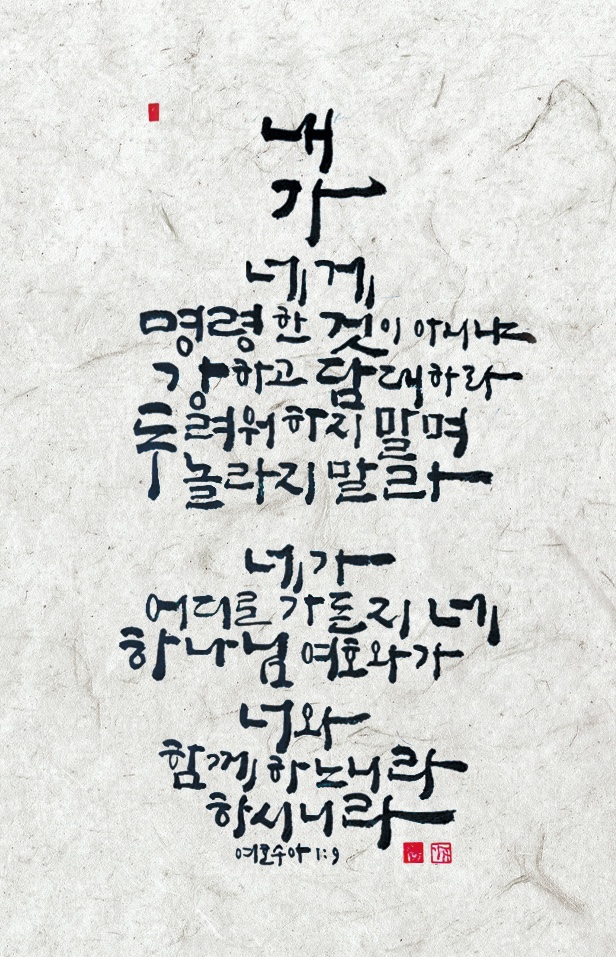 내
가
네게
명령한 것이 아니냐
강하고 담대하라
두려워하지 말며
놀라지 말라
네가
어디로 가든지 네
하나님 여호와가
너와
함께 하느니라
하시니라
여호수아 1:9